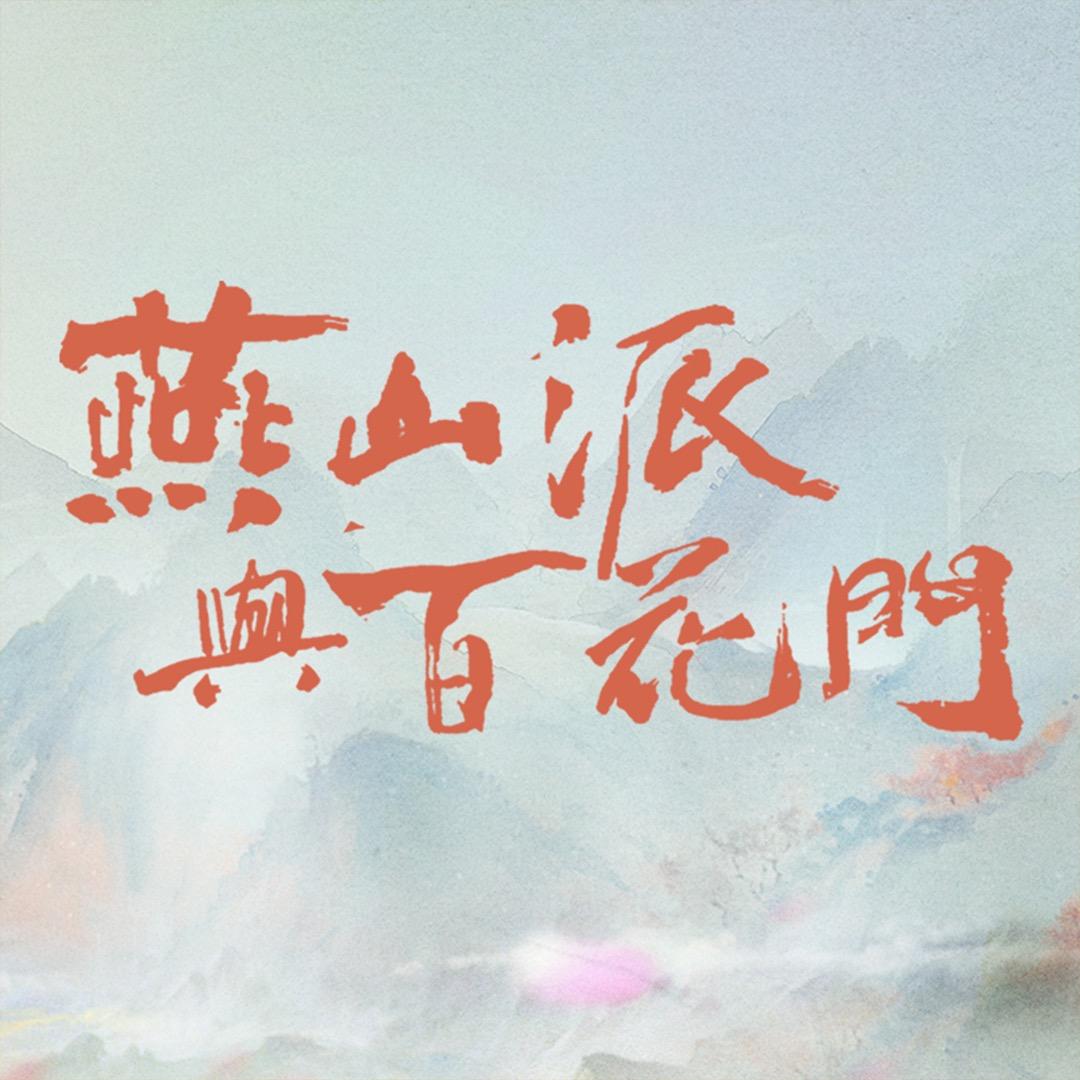 燕山派
與百花門